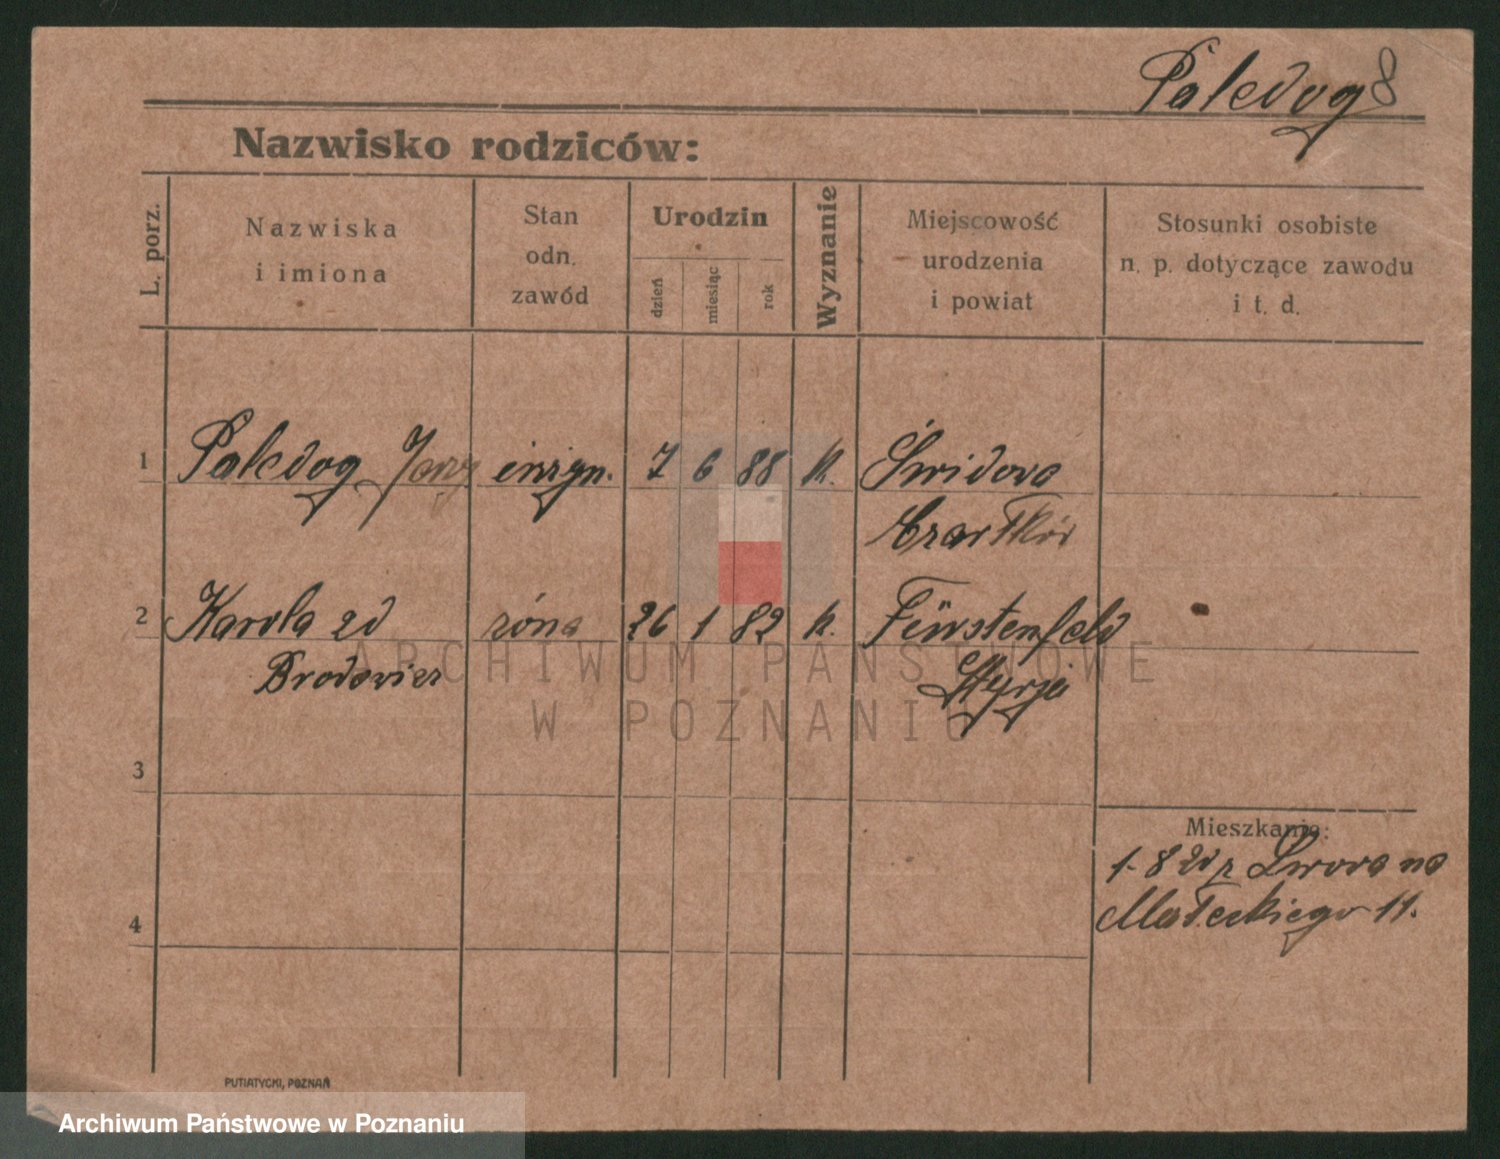 Paledog 8
Nazwisko rodziców:
L. porz.
Nazwiska
i imiona
Stan
odn.
zawód
Urodzin
dzień
miesiąc
rok
Wyznanie
Miejscowość
urodzenia
i powiat
Stosunki osobiste
n. p. dotyczące zawodu
i t. d.
1 Paledog Jerzy inżyn. 7 6 88 k. Świdowa
2 Karola zd żona 26 1 82 k. Fürstenfeld
Styrja
ARCHIWUM PAŃSTWOWE
W POZNANIU
3
Mieszkanie:
1-8 20 z Lwowa na
Małeckiego 11.
4
PUTIATYCKI, POZNAŃ
Archiwum Państwowe w Poznaniu